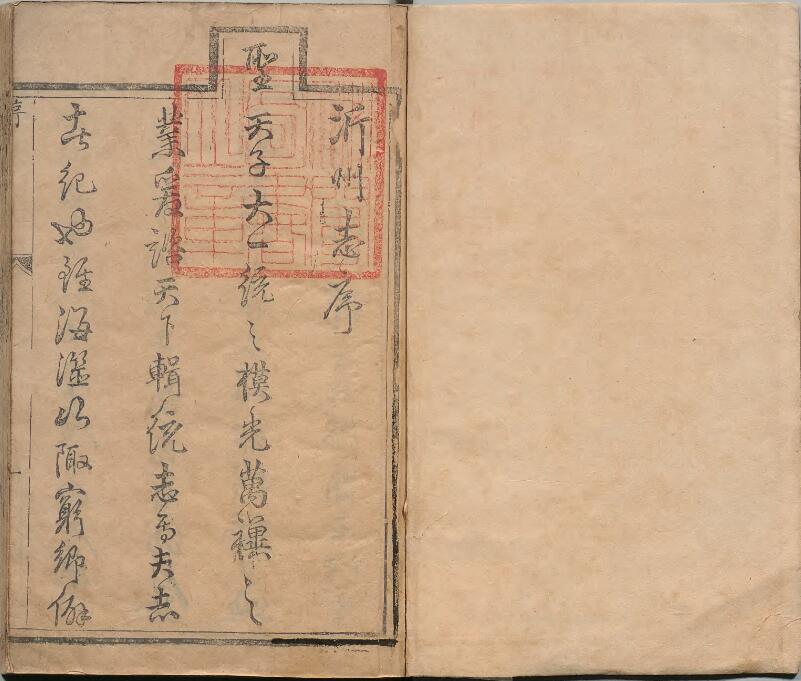 沂州志序
聖天子大一統之模光萬禩之
業爰詔天下輯統志焉夫志
者紀也雖海澨山陬窮鄉僻
序